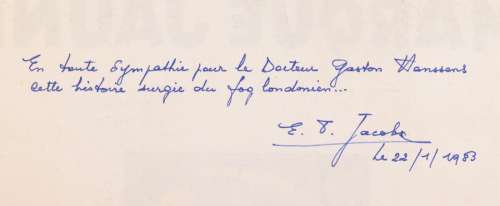 En toute Sympathie pour le Docteur Gaston Hanssens
cette histoire surgie du fog londonien...
E. P. Jacobs
le 22/1/1983